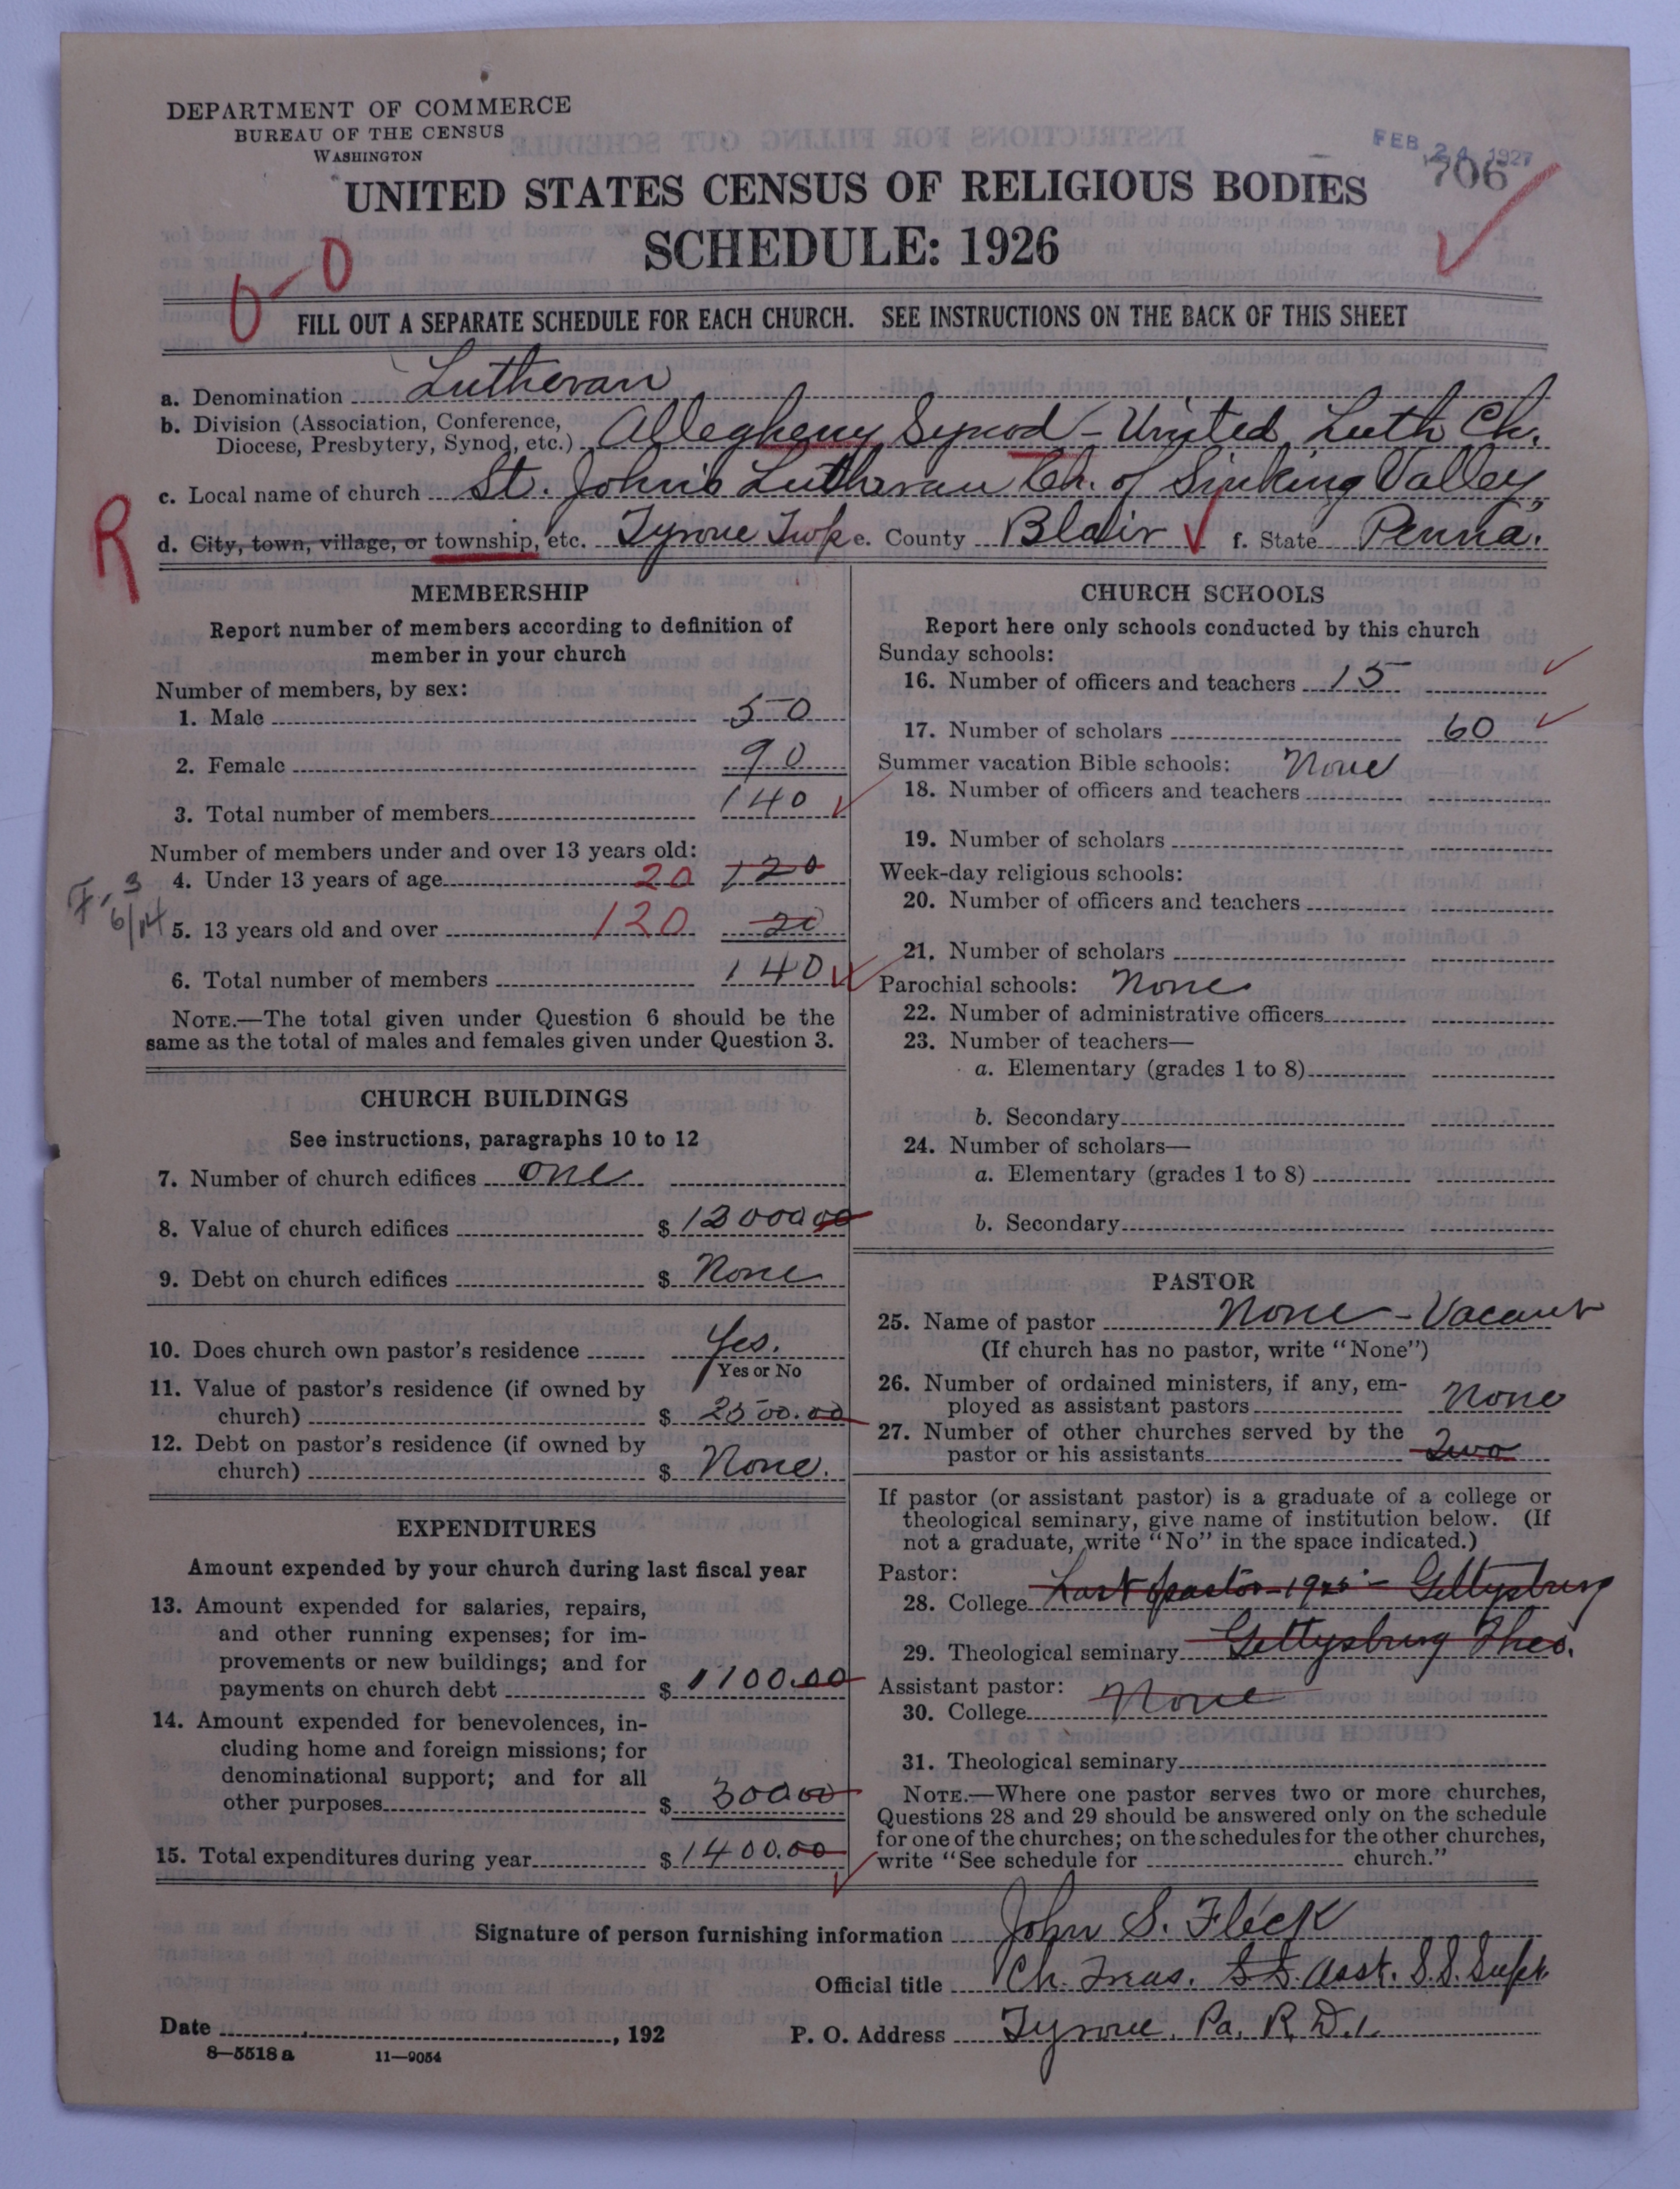 DEPARTMENT OF COMMERCE
BUREAU OF THE CENSUS
WASHINGTON
FEB 24 1927
706
UNITED STATES CENSUS OF RELIGIOUS BODIES
SCHEDULE: 1926
0-0
FILL OUT A SEPARATE SCHEDULE FOR EACH CHURCH. SEE INSTRUCTIONS ON THE BACK OF THIS SHEET
a. Denomination Lutheran
b. Division (Association, Conference,
Diocese, Presbytery, Synod, etc.) Allegheny Synod - United Luth Ch.
c. Local name of church St. John's Lutheran Ch. of Sinking Valley,
R
d. City, town, village, or township, etc. Tyrone Twp e. County Blair f. State Penna.
MEMBERSHIP
Report number of members according to definition of
member in your church
Number of members, by sex:
1. Male 50
2. Female 90
3. Total number of members 140
Number of members under and over 13 years old:
4. Under 13 years of age 20 120
F-3
6/14
5. 13 years old and over 120 20
6. Total number of members 140
NOTE.—The total given under Question 6 should be the
same as the total of males and females given under Question 3.
CHURCH BUILDINGS
See instructions, paragraphs 10 to 12
7. Number of church edifices one
8. Value of church edifices $ 12000 00
9. Debt on church edifices $ None
10. Does church own pastor's residence Yes.
Yes or No
11. Value of pastor's residence (if owned by
church) $ 2500.00
12. Debt on pastor's residence (if owned by
church) $ None.
EXPENDITURES
Amount expended by your church during last fiscal year
13. Amount expended for salaries, repairs,
and other running expenses; for im-
provements or new buildings; and for
payments on church debt $ 1100.00
14. Amount expended for benevolences, in-
cluding home and foreign missions; for
denominational support; and for all
other purposes $ 300 00
15. Total expenditures during year $ 1400.00
CHURCH SCHOOLS
Report here only schools conducted by this church
Sunday schools:
16. Number of officers and teachers 15
17. Number of scholars 60
Summer vacation Bible schools: None
18. Number of officers and teachers
19. Number of scholars
Week-day religious schools:
20. Number of officers and teachers
21. Number of scholars
Parochial schools: None
22. Number of administrative officers
23. Number of teachers—
a. Elementary (grades 1 to 8)
b. Secondary
24. Number of scholars—
a. Elementary (grades 1 to 8)
b. Secondary
PASTOR
25. Name of pastor None - Vacant
(If church has no pastor, write "None")
26. Number of ordained ministers, if any, em-
ployed as assistant pastors None
27. Number of other churches served by the
pastor or his assistants Two
If pastor (or assistant pastor) is a graduate of a college or
theological seminary, give name of institution below. (If
not a graduate, write "No" in the space indicated.)
Pastor:
28. College Last pastor - Gettysburg
29. Theological seminary Gettysburg Theo.
Assistant pastor: None
30. College
31. Theological seminary
NOTE.—Where one pastor serves two or more churches,
Questions 28 and 29 should be answered only on the schedule
for one of the churches; on the schedules for the other churches,
write "See schedule for church."
Signature of person furnishing information John S. Fleck
Official title Ch. Treas. Asst. S.S. Supt.
Date , 192
P. O. Address Tyrone, Pa. R.D.1.
8—5518 a 11—9054